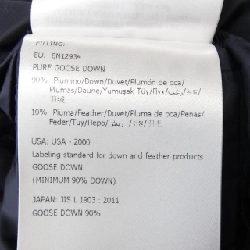 FILLING:
EU: EN12934
PURE GOOSE DOWN
90% Piumino/Down/Duvet/Plumón de oca/
Mumas/Daune/Yumuşak Tüy/Пух/
10% Piuma/Feather/Duvet/Pluma de oca/Penas/
Feder/Tüy/Перо/
USA: USA - 2000
Labeling standard for down and feather products
GOOSE DOWN
(MINIMUM 90% DOWN)
JAPAN: JIS L 1903 : 2011
GOOSE DOWN 90%